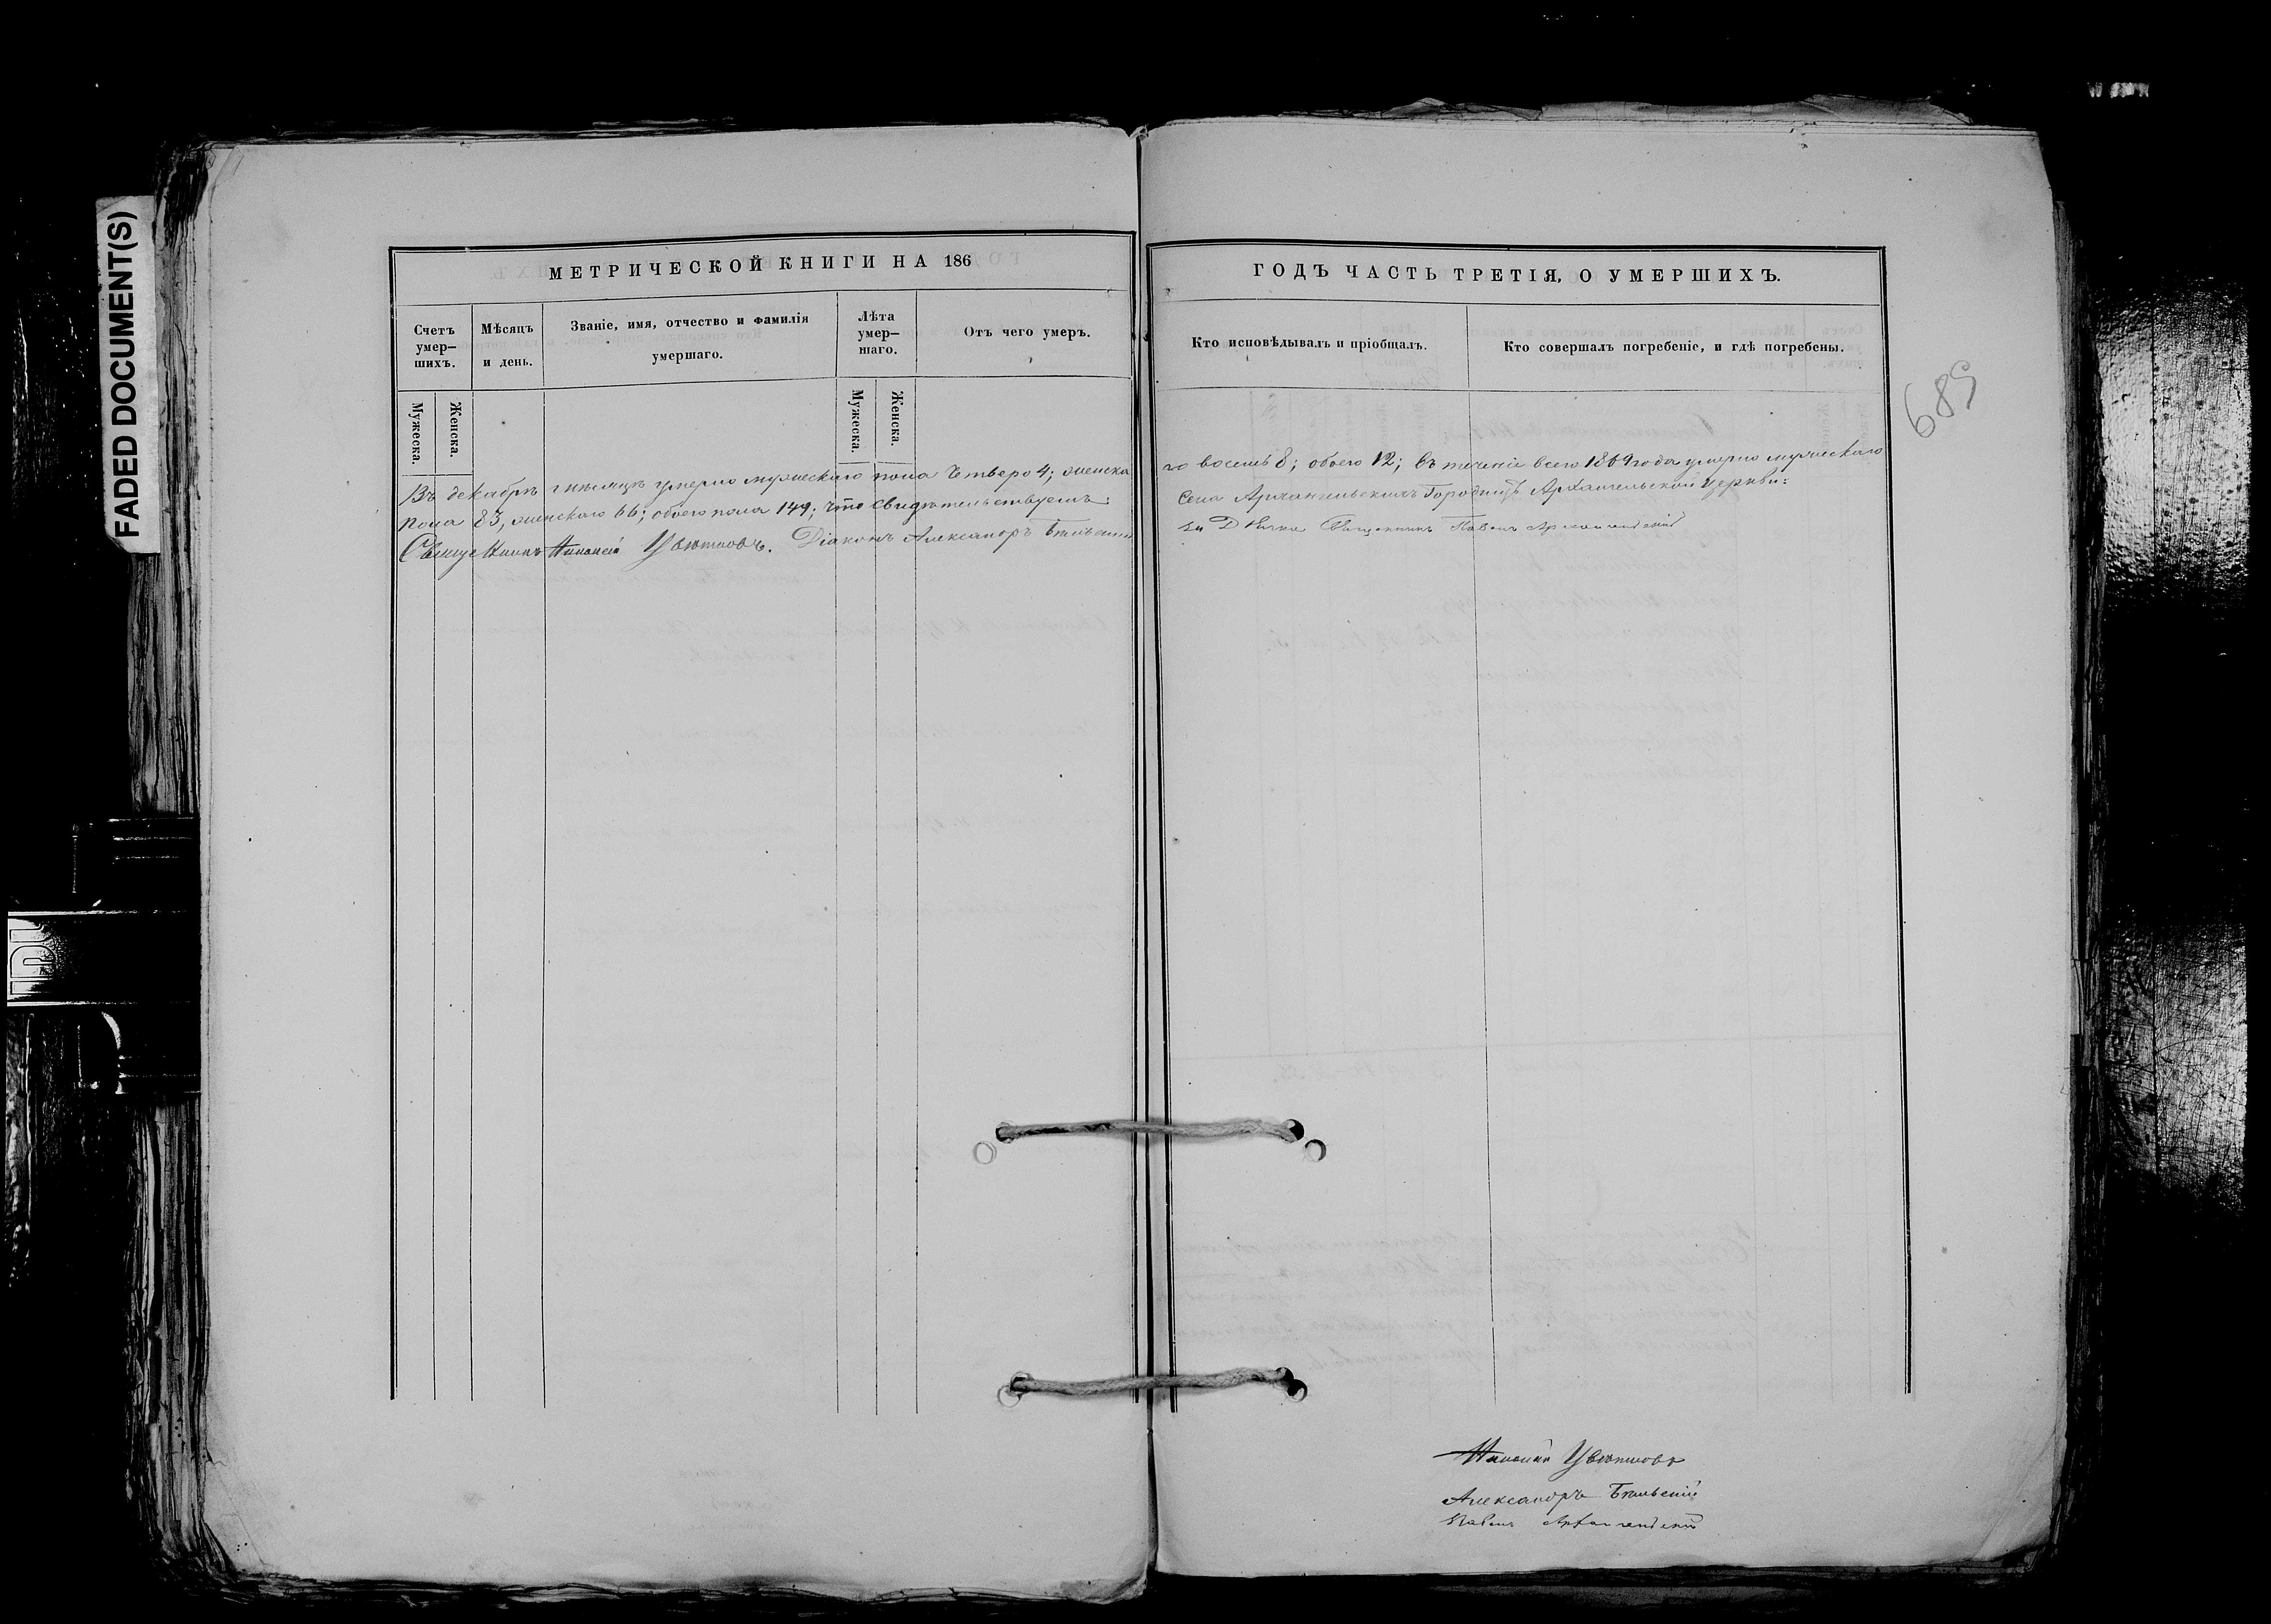 FADED DOCUMENT(S)
МЕТРИЧЕСКОЙ КНИГИ НА 186
Счетъ умер–шихъ.
Мѣсяцъ и день.
Званіе, имя, отчество и фамилія умершаго.
Лѣта умер–шаго.
Отъ чего умеръ.
Мужеска.
Женска.
Мужеска.
Женска.
ГОДЪ ЧАСТЬ ТРЕТІЯ, О УМЕРШИХЪ.
Кто исповѣдывалъ и пріобщалъ.
Кто совершалъ погребеніе, и гдѣ погребены.
689
Въ декабрѣ мѣсяцѣ умерло мужескаго пола четверо 4; женска
го восемь 8; обоего 12; въ теченіе всего 1869 года умерло мужескаго
пола 83, женскаго 66; обоего пола 149; что свидѣтельствуемъ:
села Архангельскихъ Городищъ Архангельской церкви:
Священникъ Цвѣтковъ. Діаконъ Александръ
Павелъ
Цвѣтковъ
Александръ
Павелъ